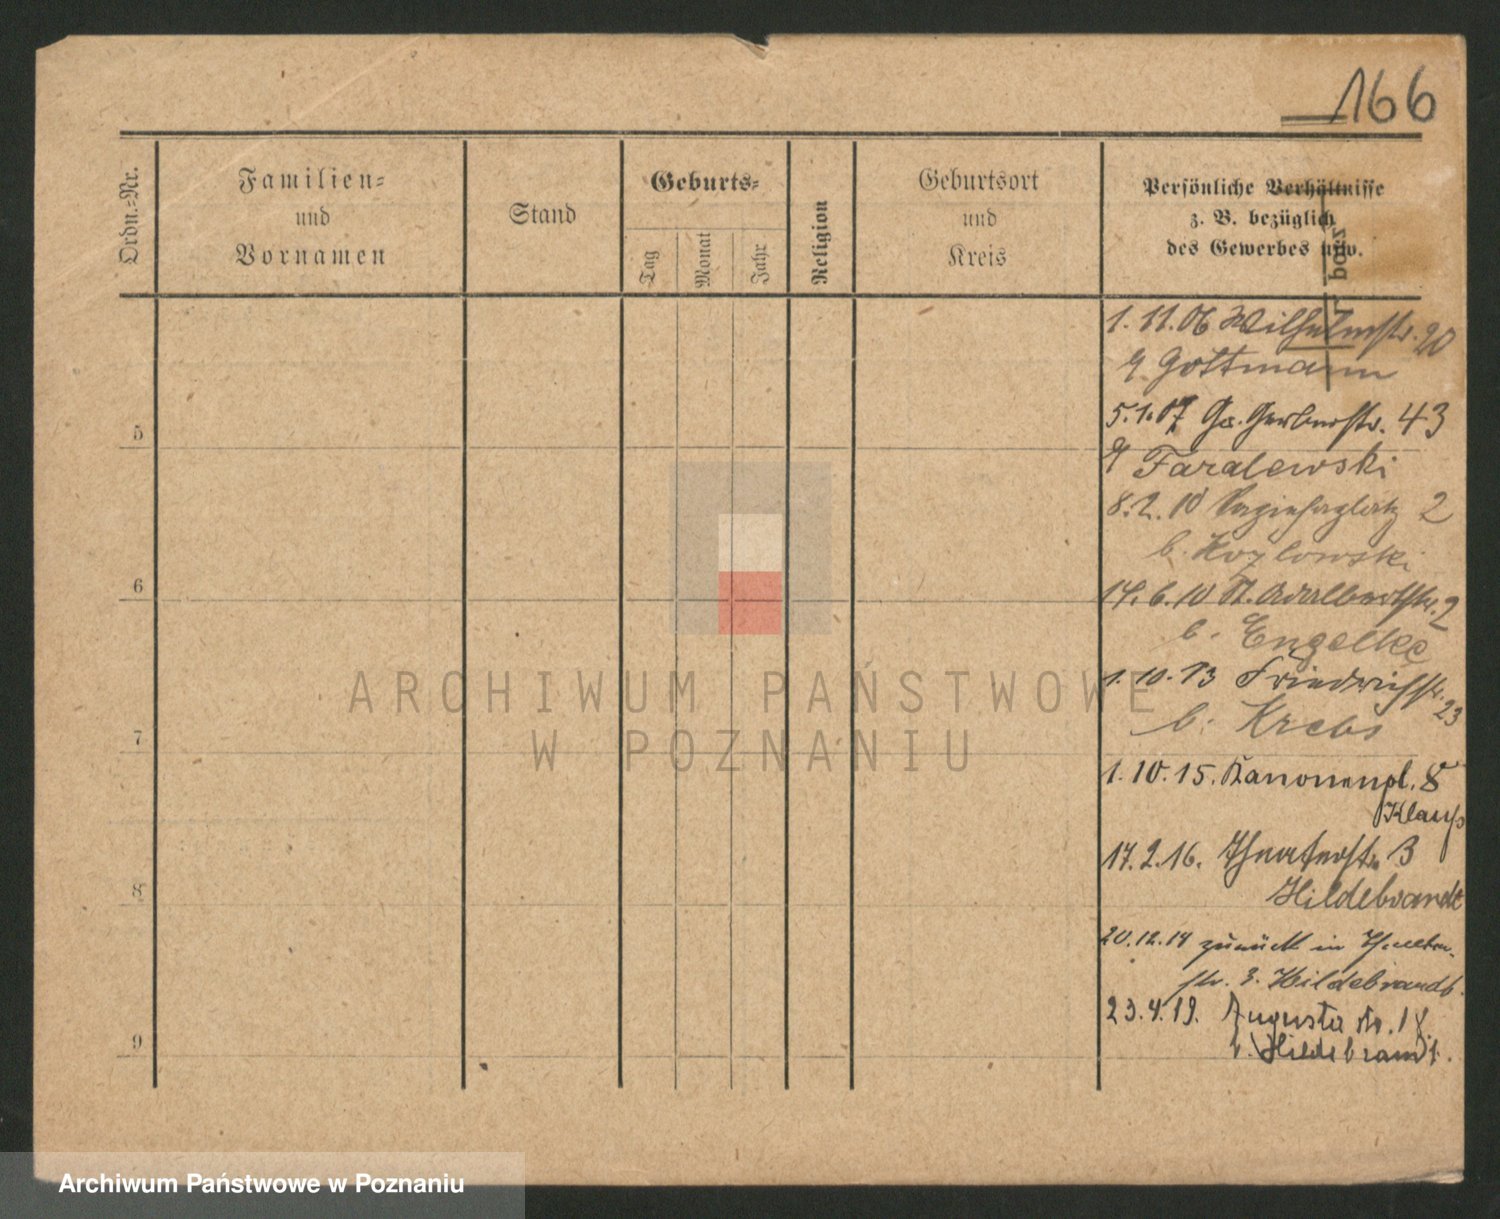 166
Ordn.-Nr.
Familien-
und
Vornamen
Stand
Geburts-
Tag
Monat
Jahr
Religion
Geburtsort
und
Kreis
Persönliche Verhältnisse
z. B. bezüglich
des Gewerbes usw.
1. 11. 06 Wilhelmstr. 20
Gottmann
5. 1. 07 Gr. Gerberstr. 43
5
Faralewski
8. 2. 10 2
b. Kozlowski
6
14. 6. 10 St. Adalbertstr. 2
b. Engelke
1. 10. 13 Friedrichstr. 23
b. Krebs
7
1. 10. 15. Kanonenpl. 8
Klauß
17. 2. 16. Theaterstr. 3
8
Hildebrandt
20. 12. zurück in Theater-
str. 3. Hildebrandt.
23. 4. 19. Augusta str. 18.
9
b. Hildebrandt.
ARCHIWUM PAŃSTWOWE
W POZNANIU
Archiwum Państwowe w Poznaniu